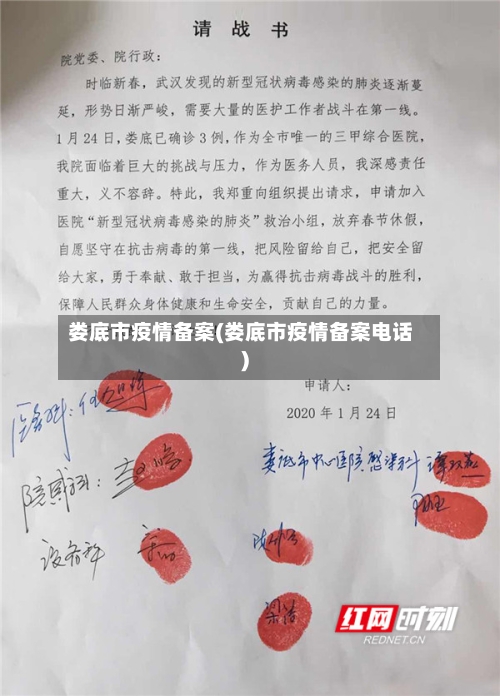 请 战 书
院党委、院行政：
时临新春，武汉发现的新型冠状病毒感染的肺炎逐渐蔓
延，形势日渐严峻，需要大量的医护工作者战斗在第一线。
1月24日，娄底已确诊3例，作为全市唯一的三甲综合医院，
我院面临着巨大的挑战与压力，作为医务人员，我深感责任
重大，义不容辞。特此，我郑重向组织提出请求，申请加入
医院“新型冠状病毒感染的肺炎”救治小组，放弃春节休假，
自愿坚守在抗击病毒的第一线，把风险留给自己，把安全留
给大家，勇于奉献、敢于担当，为赢得抗击病毒战斗的胜利，
保障人民群众身体健康和生命安全，贡献自己的力量。
娄底市疫情备案(娄底市疫情备案电话
)
申请人：
2020年1月24日
医务科：
娄底市中心医院感染科
院感科：
设备科
梁清
红网时刻
REDNET.CN